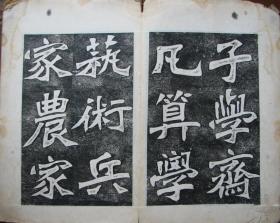 子學齋
凡算學
蓺術兵
家農家